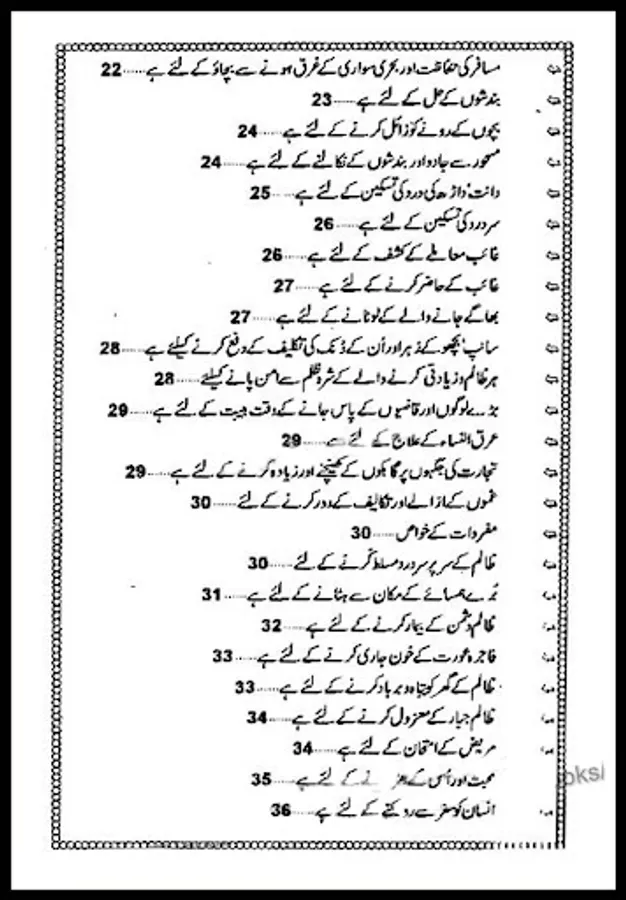 مسافر کی حفاظت اور بحری سواری کے غرق ہونے سے بچاؤ کے لئے ہے.....22
بندشوں کے حل کے لئے ہے.....23
بچوں کے رونے کو زائل کرنے کے لئے ہے.....24
مسحور سے جادو اور بندشوں کے نکالنے کے لئے ہے.....24
دانت' داڑھ کی درد کی تسکین کے لئے ہے.....25
سر درد کی تسکین کے لئے ہے.....26
غائب معاملے کے کشف کے لئے ہے.....26
غائب کے حاضر کرنے کے لئے ہے.....27
بھاگے جانے والے کے لوٹانے کے لئے ہے.....27
سانپ' بچھو کے زہر اور اُن کے ڈنک کی تکلیف کے دفع کرنے کیلئے ہے.....28
ہر ظالم و زیادتی کرنے والے کے شر و ظلم سے امن پانے کیلئے.....28
بڑے لوگوں اور قاضیوں کے پاس جانے کے وقت ہیبت کے لئے ہے.....29
عرق النساء کے علاج کے لئے ہے.....29
تجارت کی جگہوں پر گاہکوں کے کھینچنے اور زیادہ کرنے کے لئے ہے.....29
غموں کے ازالے اور تکالیف کے دور کرنے کے لئے.....30
مفردات کے خواص.....30
ظالم کے سر پر سر درد مسلط کرنے کے لئے.....30
بُرے ہمسائے کے مکان سے ہٹانے کے لئے ہے.....31
ظالم دشمن کے بیمار کرنے کے لئے ہے.....32
فاجرہ عورت کے خون جاری کرنے کے لئے ہے.....33
ظالم کے گھر کو تباہ و برباد کرنے کے لئے ہے.....33
ظالم جبار کے معزول کرنے کے لئے ہے.....34
مریض کے امتحان کے لئے ہے.....34
محبت اور اُس کے نے کے لئے ہے.....35
انسان کو سفر سے روکنے کے لئے ہے.....36
oks/